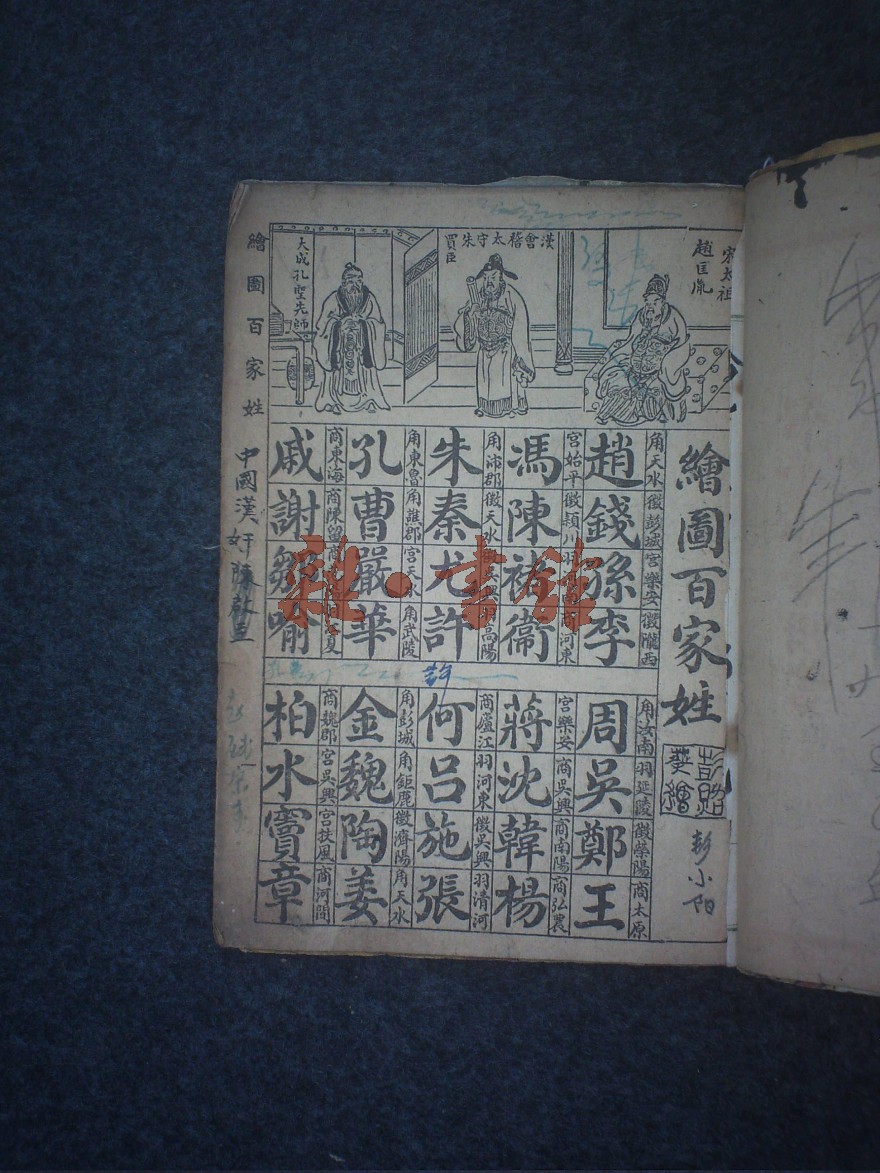 繪圖百家姓
彭小阳
宋太祖
趙匡胤
漢會稽太守朱買臣
大成孔聖先師
趙錢孫李
角天水徵彭城宮樂安徵隴西
馮陳褚衞
宮始平徵潁川羽 商河東
朱秦尤許
角沛郡徵天水 吳興羽高陽
孔曹嚴華
角東魯角譙郡宮天水角武陵
戚謝鄒喻
商東海商陳留
周吳鄭王
角汝南羽延陵徵滎陽商太原
蔣沈韓楊
宮樂安商吳興商南陽商弘農
何呂施張
商廬江羽河東徵吳興羽清河
金魏陶姜
角彭城角鉅鹿徵濟陽角天水
柏水竇章
商魏郡宮吳興宮扶風商河間
繪圖百家姓
中國漢奸陳
雜·書館